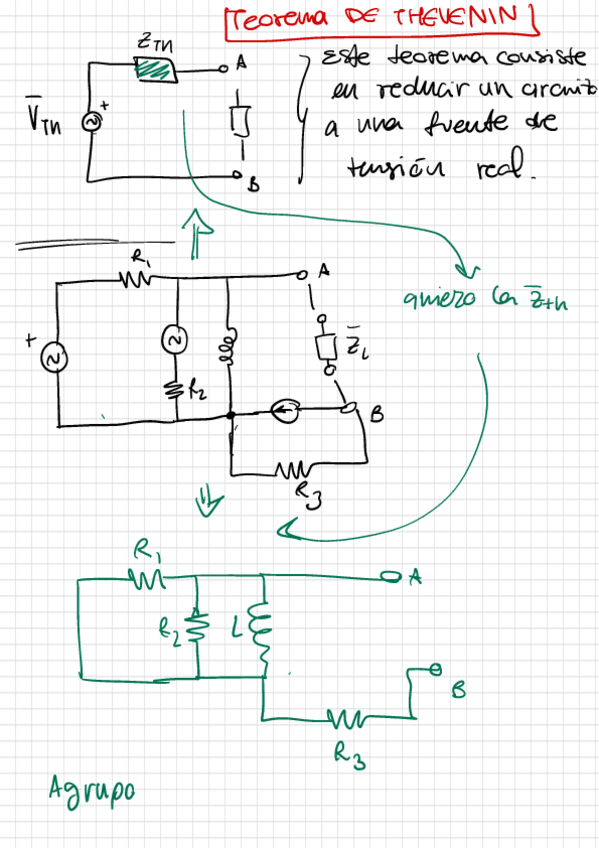 Teorema DE THEVENIN
Z_TH
A
V̅_TH
+
B
Este teorema consiste
en reducir un circuito
a una fuente de
tensión real.
R₁
A
quiero la z̅_th
+
R₂
Z̅_L
B
R₃
R₁
A
R₂
L
B
R₃
Agrupo